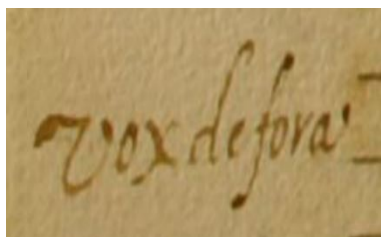 vox de fora